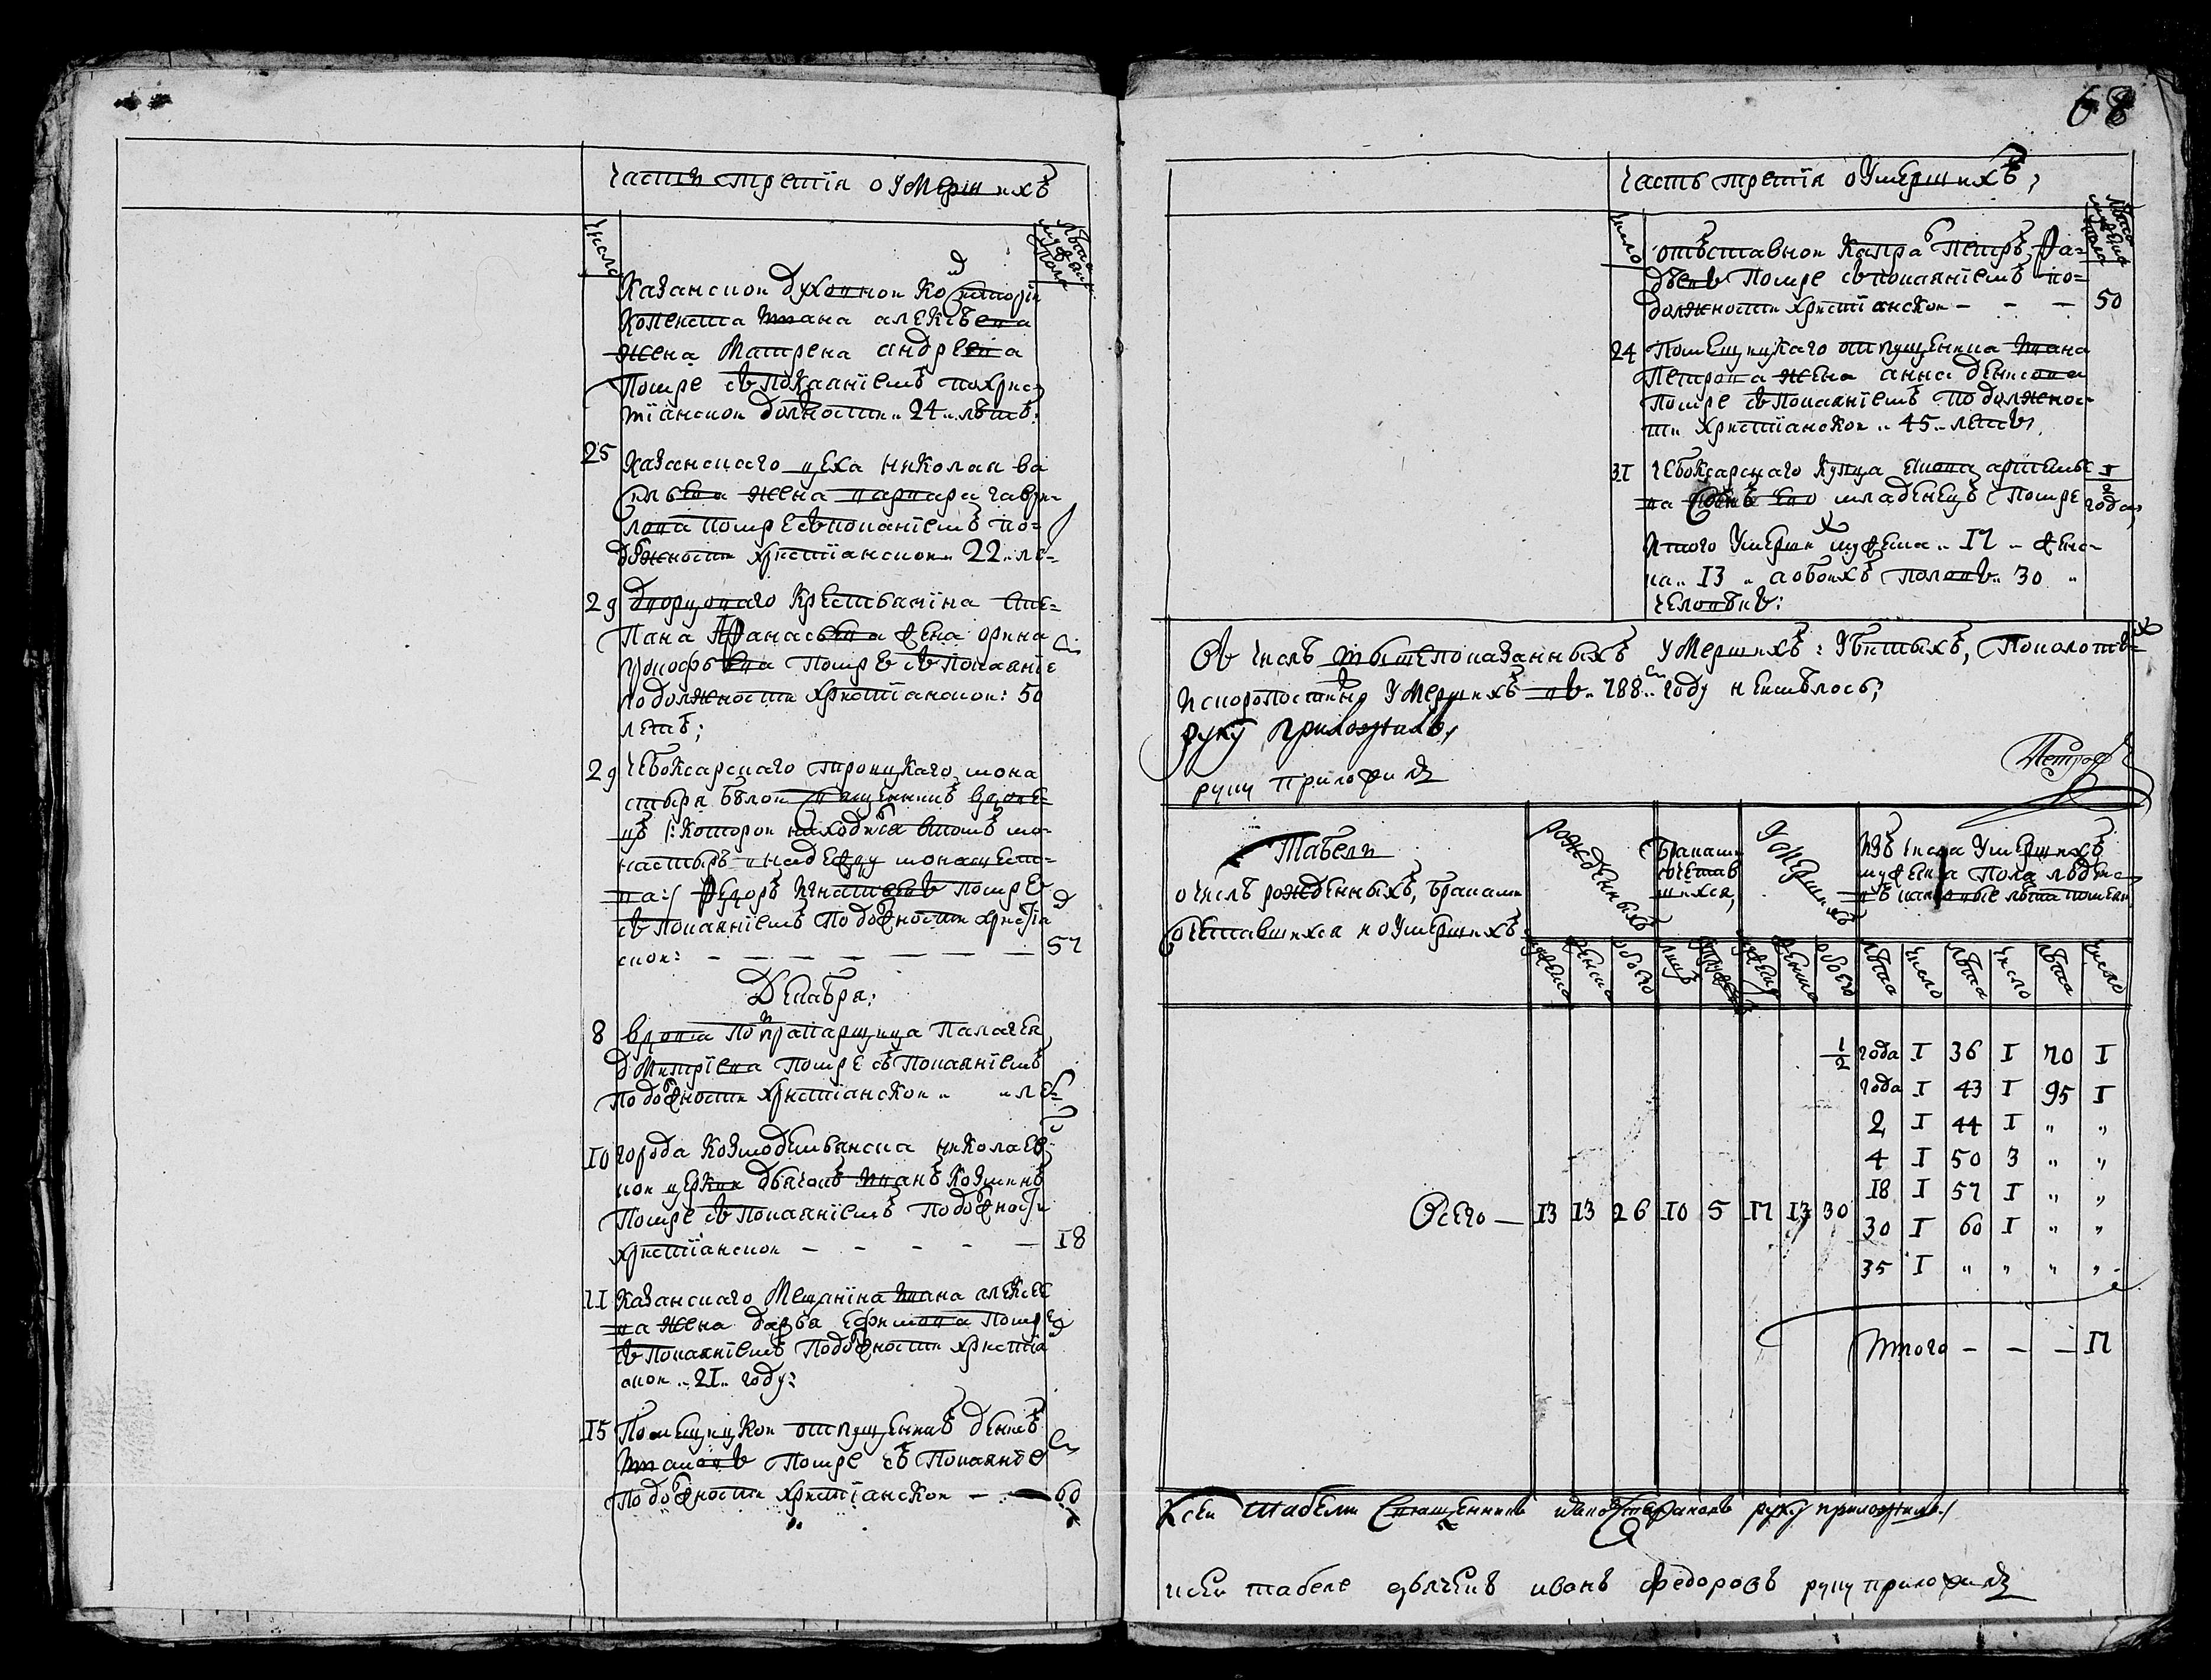 Часть третїя о Умершихъ
число
лѣта мужеска пола
Казанской духовной Консторіи
Копеиста Ивана алексѣева
жена Матрена андреева
Помре съ покаянїемъ похрис-
тїанской должности 24 лѣтъ:
25 Казанскаго цеха николая ва
сильева жена варвара гаври-
лова помре съ покаянїемъ по-
должности христїанской 22 ле-
29 дворцоваго Крестьянїна Сте-
пана Афанасьева жена орина
помре съ покаянїе
подолжности христїанской: 50
летъ;
29 Чебоксарскаго троицкаго мона
стыря бѣлой священникъ вдове-
цъ /: Которой находился втомъ мо-
настырѣ внадежду монашест-
ва:/ Федоръ Игнатьевъ помре
съ покаянїемъ по должности христїа
ской: — — — — — — 57
Декабря:
8 вдова Пелагея
дмитрїева помре съ покаянїемъ
по должности христїанской „ „ ле
10 города Козмодемьянска николаев
кой церкви дьячокъ Иванъ Козминъ
Помре съ покаянїемъ по должности
христїанской — — — — — 18
11 Казанскаго Мещанїна Ивана алексее
ва жена дарья ефимова помре
съ покаянїемъ по должности христїа
ской 21 году:
15 Помещицкой отпущенникъ денисъ
Ивановъ помре съ покаянїе
по должности христїанской — — 60
68
Часть третїя о Умершихъ;
число
лѣта мужеска пола
отъставной Капра Петръ Фа-
дѣевъ помре съ покаянїемъ по-
должности христїанской — — — 50
24 Помещицкаго отпущенника Ивана
Петрова жена анна денисова
помре съ покаянїемъ по должнос-
ти христїанской 45 летъ,
31 Чебоксарскаго купца артемье
ва сынъ ево младенецъ помре
1 года
Итого Умерших мужеска 17 женс-
ка 13 а обоихъ половъ 30
человѣкъ:
Въ числѣ вышепоказанныхъ Умершихъ: Убитыхъ,
И скоропостижно Умершихъ въ 788 году неимѣлось;
руку приложилъ,
Петров
руку приложилъ
Табель
о числѣ рожденныхъ, бракамъ
сочетавшихся и о Умершихъ
рожденныхъ
бракамъ сочетавшихся,
Умершихъ
Изъ числа Умершихъ
мужеска пола людей
въ каковые лѣта померли
мужеска женска обоего лицъ мужеска женска обоего лѣта число лѣта число лѣта число
1/2 года 1 36 1 70 1
года 1 43 1 95 1
2 1 44 1 „ „
4 1 50 3 „ „
18 1 57 1 „ „
Всего — 13 13 26 10 5 17 13 30
30 1 60 1 „ „
35 1 „ „ „ „
Итого — — — 17
Ксей табели Священникъ Иаковъ Стефановъ руку приложилъ
ксей табеле дьячекъ иванъ федоровъ руку приложилъ